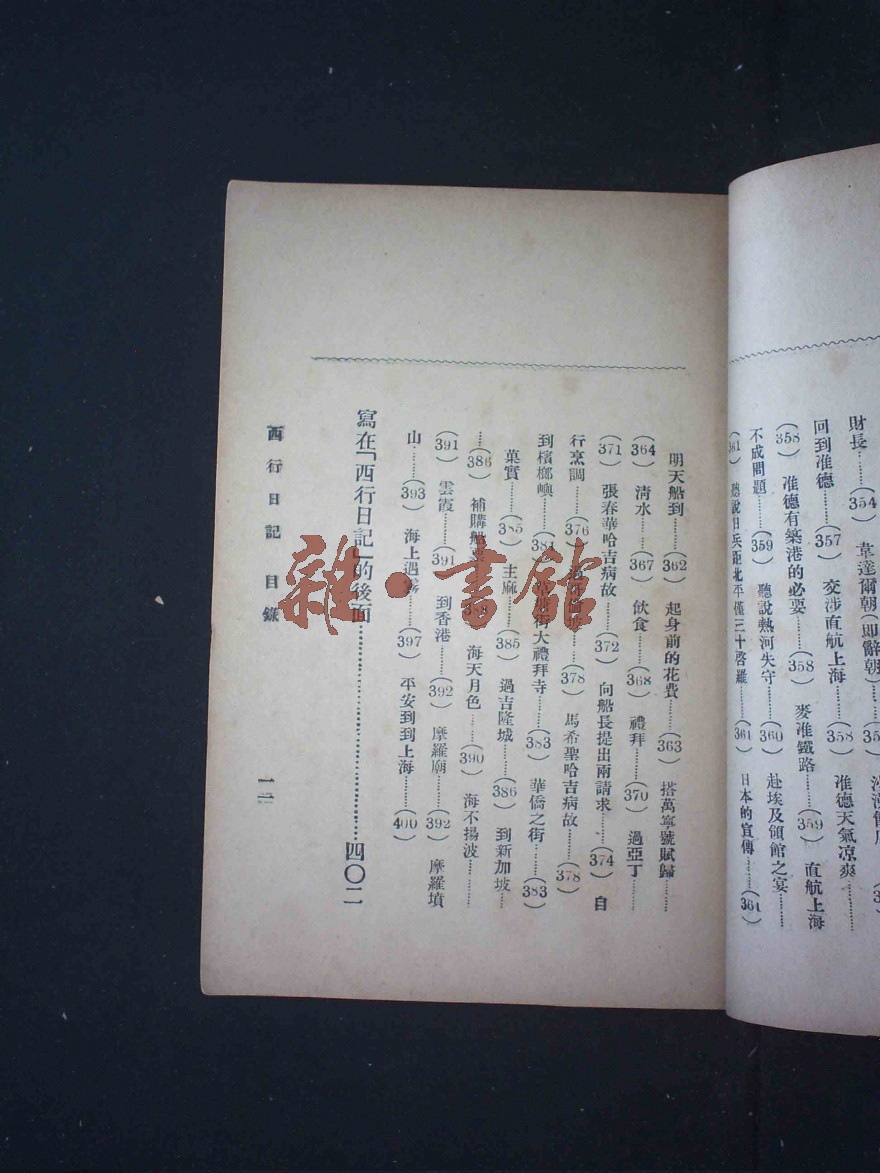 財長……(354) 韋達爾朝(即辭朝)
回到准德……(357) 交涉直航上海……(358) 准德天氣凉爽……
(358) 准德有築港的必要……(358) 麥准鐵路……(359) 直航上海
不成問題……(359) 聽說熱河失守……(360) 赴埃及領館之宴……
(361) 聽說日兵距北平僅三十啓羅……(361) 日本的宣傳……(361)
明天船到……(362) 起身前的花費……(363) 搭萬寧號賦歸……
(364) 淸水……(367) 飲食……(368) 禮拜……(370) 過亞丁……
(371) 張春華哈吉病故……(372) 向船長提出兩請求……(374) 自
行烹調……(376) (378) 馬希聖哈吉病故……(378)
到檳榔嶼……(381) 街大禮拜寺……(383) 華僑之街……(383)
菓實……(385) 主麻……(385) 過吉隆城……(386) 到新加坡……
……(386) 補購船票 海天月色……(390) 海不揚波……
(391) 雲霞……(391) 到香港……(392) 摩羅廟……(392) 摩羅墳
山……(393) 海上遇霧……(397) 平安到到上海……(400)
寫在「西行日記」的後面……四〇二
西行日記 目錄 一二
雜·書館